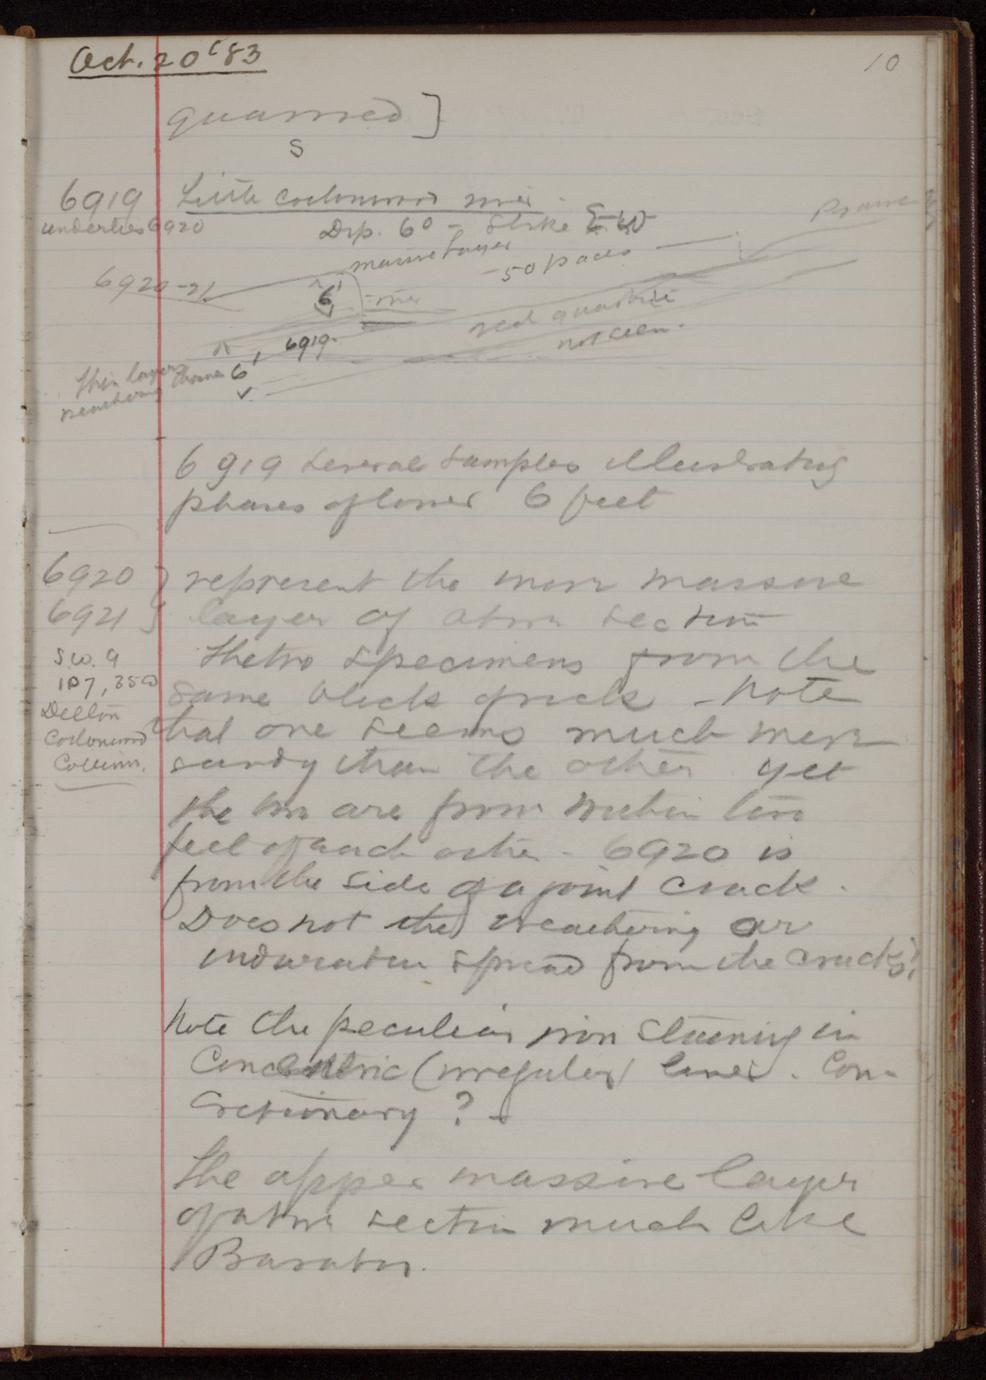 Oct. 20 '83
10
quarried]
S
6919 Little Cottonwood river
underlies 6920
Dip. 6° - Strike E-W
massive layer
- 50 paces
Prairie
6920-21
6'
river
red quartzite
not seen.
6919.
thin layers
6'
weathering
6919 several samples illustrating
phases of lower 6 feet
6920 } represent the more massive
6921 } layer of above section
S.W. 9
107, 35
Dellon
Cottonwood
Column.
The two specimens from the
same block quick - Note
that one seems much more
sandy than the other yet
the two are from within two
feet of each other - 6920 is
from the side of a joint crack.
Does not the weathering or
induration spread from the cracks?
Note the peculiar iron staining in
Concentric (irregular) lines. Con-
cretionary? -
The upper massive layer
of above section much like
Baraboo.